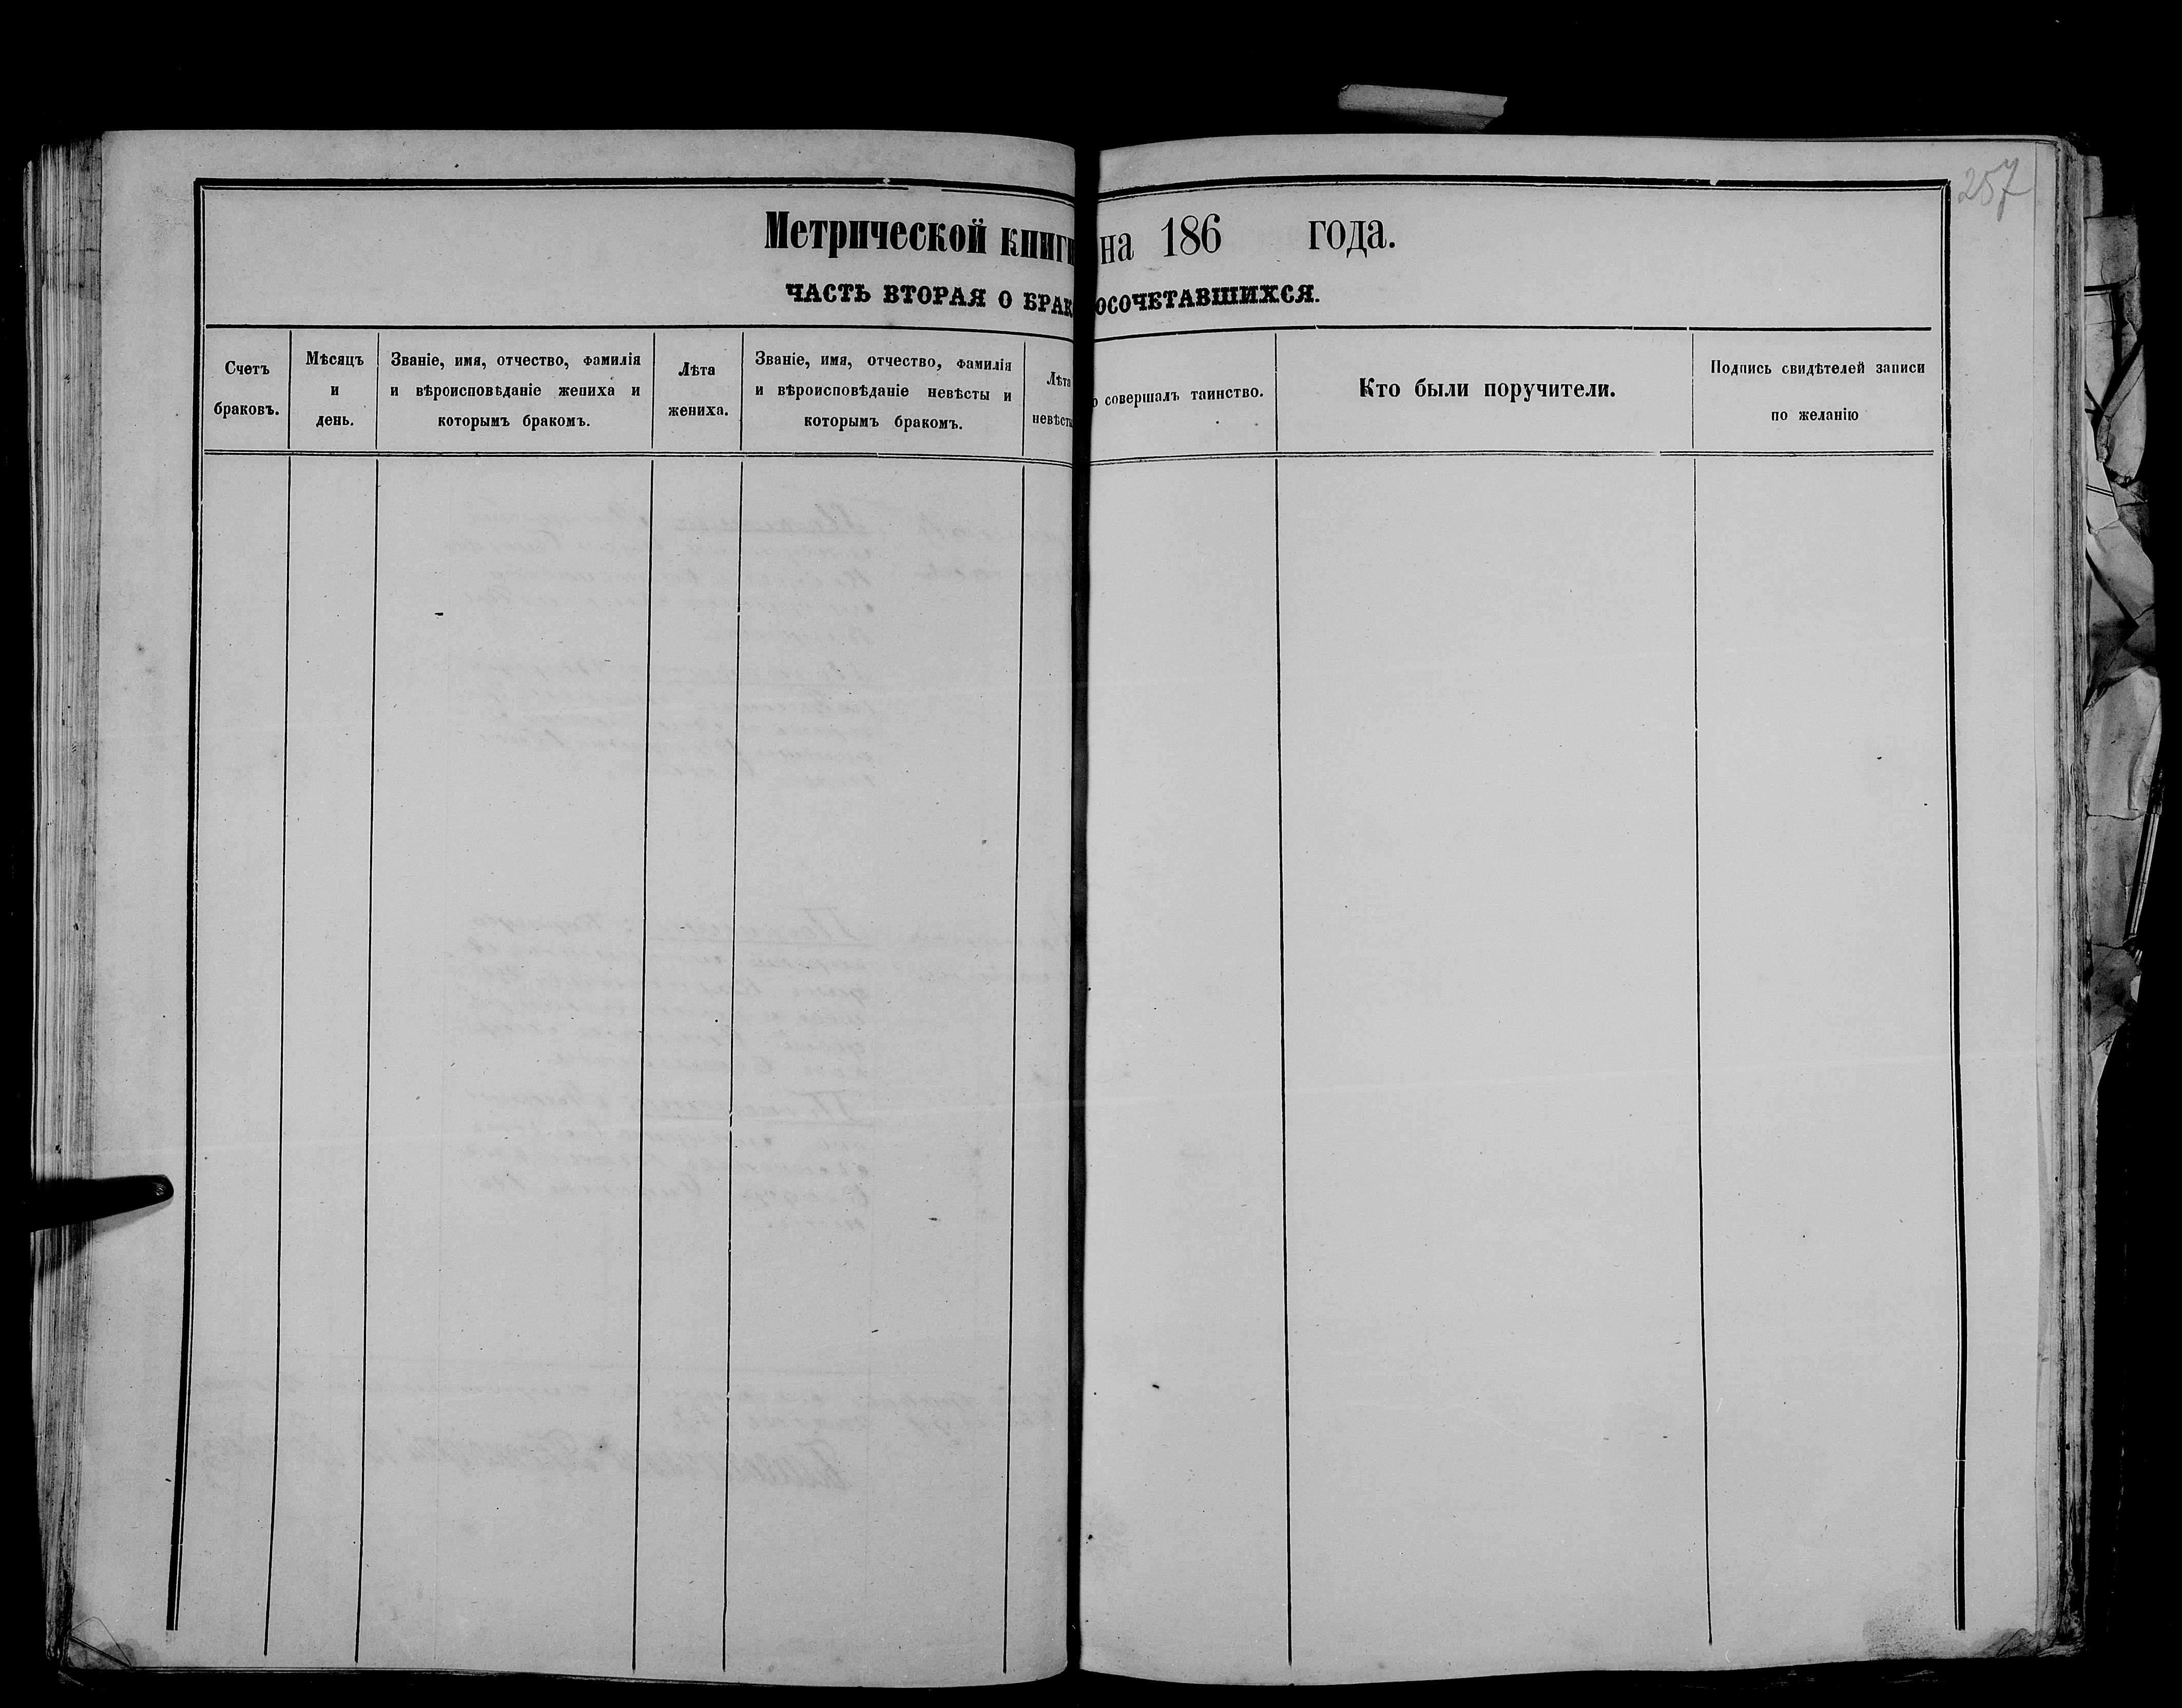 257
Метрической книги на 186 года.
ЧАСТЬ ВТОРАЯ О БРАКОСОЧЕТАВШИХСЯ.
Счетъ
браковъ.
Мѣсяцъ
и
день.
Званіе, имя, отчество, фамилія
и вѣроисповѣданіе жениха и
которымъ бракомъ.
Лѣта
жениха.
Званіе, имя, отчество, фамилія
и вѣроисповѣданіе невѣсты и
которымъ бракомъ.
Лѣта
невѣсты
совершалъ таинство.
Кто были поручители.
Подпись свидѣтелей записи
по желанію